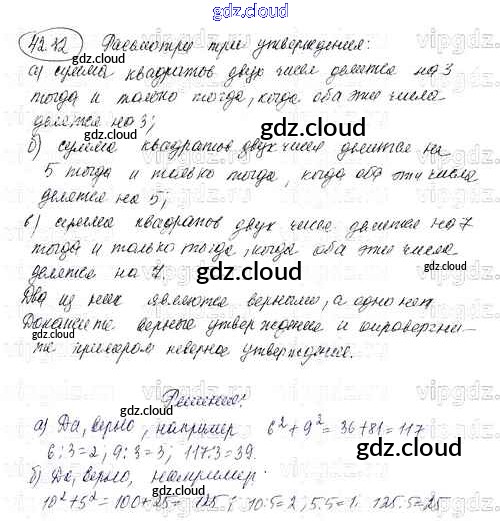 gdz.cloud
42.12 Рассмотрим три утверждения:
а) сумма квадратов двух чисел делится на 3
тогда и только тогда, когда оба эти числа
делятся на 3;
б) сумма квадратов двух чисел делится на
5 тогда и только тогда, когда оба эти числа
делятся на 5;
в) сумма квадратов двух чисел делится на 7
тогда и только тогда, когда оба эти числа
делятся на 7.
Два из них являются верными, а одно нет.
Докажите верные утверждения и опровергни-
те примером неверное утверждение.
Решение:
а) Да, верно, например 6² + 9² = 36 + 81 = 117
6 : 3 = 2; 9 : 3 = 3; 117 : 3 = 39.
б) Да, верно, например:
10² + 5² = 100 + 25 = 125; 10 : 5 = 2; 5 : 5 = 1. 125 : 5 = 25